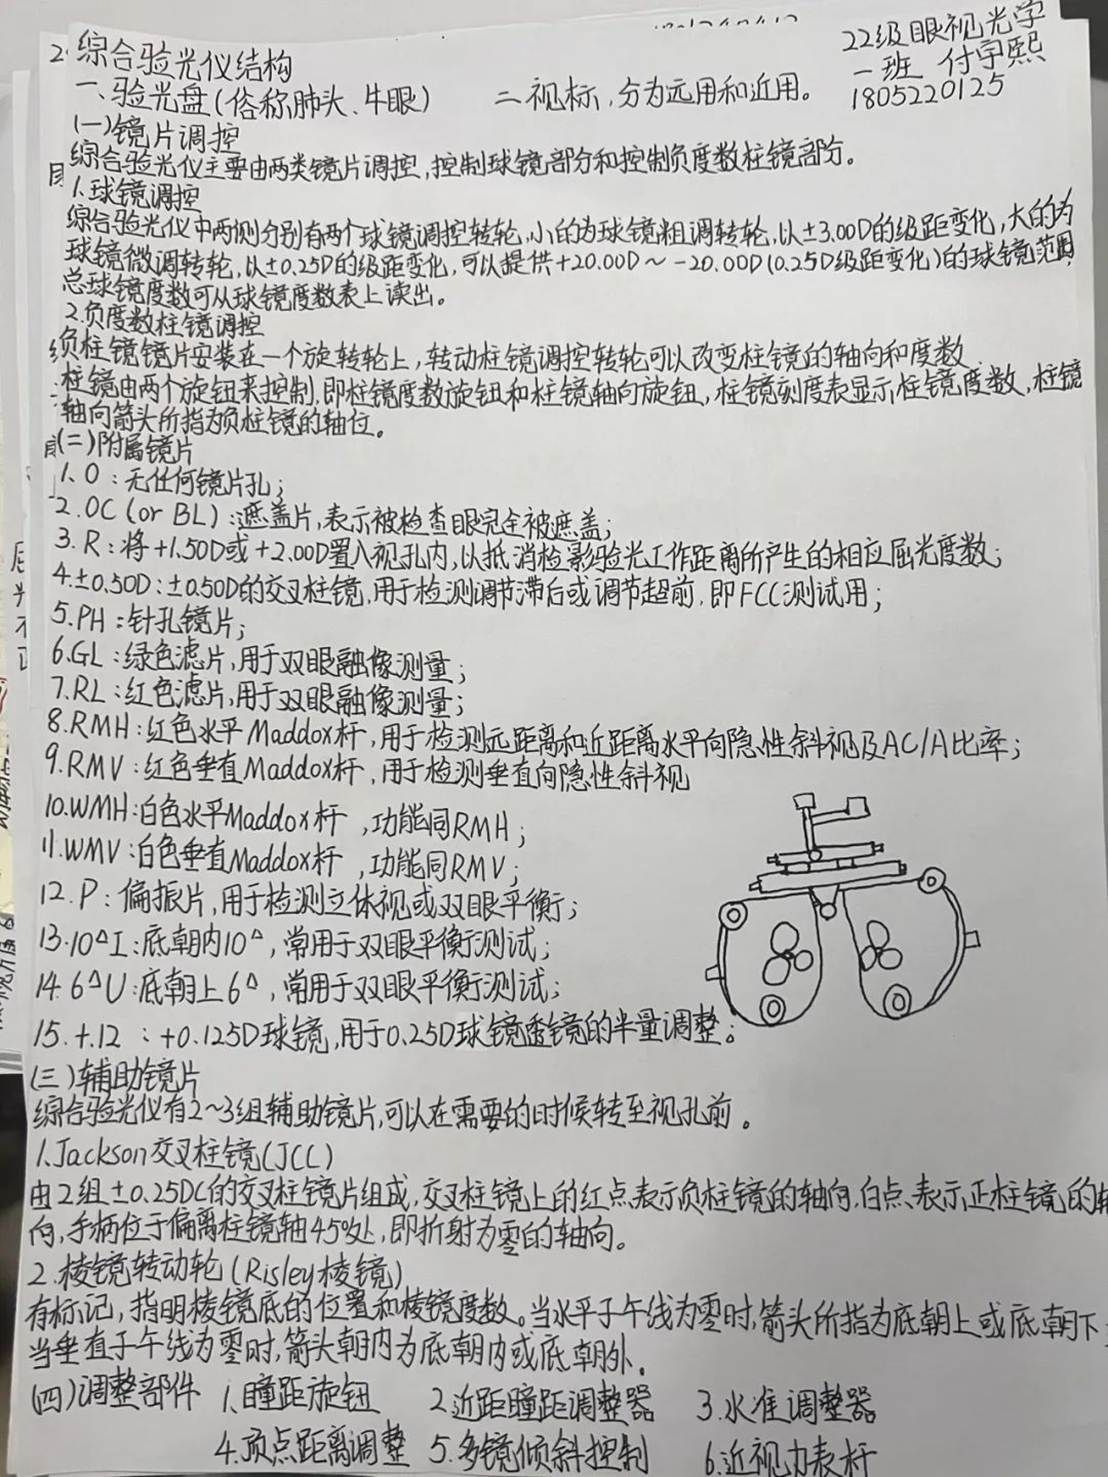 22级眼视光学
综合验光仪结构
一班 付宇熙
一、验光盘(俗称肺头、牛眼) 二视标,分为远用和近用。
1805220125
(一)镜片调控
综合验光仪主要由两类镜片调控,控制球镜部分和控制负度数柱镜部分。
1.球镜调控
综合验光仪中两侧分别有两个球镜调控转轮,小的为球镜粗调转轮,以±3.00D的级距变化,大的为
球镜微调转轮,以±0.25D的级距变化,可以提供+20.00D~-20.00D(0.25D级距变化)的球镜范围
总球镜度数可从球镜度数表上读出。
2.负度数柱镜调控
负柱镜镜片安装在一个旋转轮上,转动柱镜调控转轮可以改变柱镜的轴向和度数
柱镜由两个旋钮来控制,即柱镜度数旋钮和柱镜轴向旋钮,柱镜刻度表显示柱镜度数,柱镜
轴向箭头所指为负柱镜的轴位。
(二)附属镜片
1.O:无任何镜片孔;
2.OC(or BL):遮盖片,表示被检查眼完全被遮盖;
3.R:将+1.50D或+2.00D置入视孔内,以抵消检影验光工作距离所产生的相应屈光度数;
4.±0.50D:±0.50D的交叉柱镜,用于检测调节滞后或调节超前,即FCC测试用;
5.PH:针孔镜片;
6.GL:绿色滤片,用于双眼融像测量;
7.RL:红色滤片,用于双眼融像测量;
8.RMH:红色水平Maddox杆,用于检测远距离和近距离水平向隐性斜视及AC/A比率;
9.RMV:红色垂直Maddox杆,用于检测垂直向隐性斜视
10.WMH:白色水平Maddox杆,功能同RMH;
11.WMV:白色垂直Maddox杆,功能同RMV;
12.P:偏振片,用于检测立体视或双眼平衡;
13.10△I:底朝内10△,常用于双眼平衡测试;
14.6△U:底朝上6△,常用于双眼平衡测试;
15.+.12:+0.125D球镜,用于0.25D球镜透镜的半量调整。
(三)辅助镜片
综合验光仪有2~3组辅助镜片,可以在需要的时候转至视孔前。
1.Jackson交叉柱镜(JCC)
由2组±0.25DC的交叉柱镜片组成,交叉柱镜上的红点表示负柱镜的轴向,白点表示正柱镜的轴
向,手柄位于偏离柱镜轴45°处,即折射为零的轴向。
2.棱镜转动轮(Risley棱镜)
有标记,指明棱镜底的位置和棱镜度数。当水平子午线为零时,箭头所指为底朝上或底朝下
当垂直子午线为零时,箭头朝内为底朝内或底朝外。
(四)调整部件 1.瞳距旋钮 2.近距瞳距调整器 3.水准调整器
4.顶点距离调整 5.多镜倾斜控制 6.近视力表杆